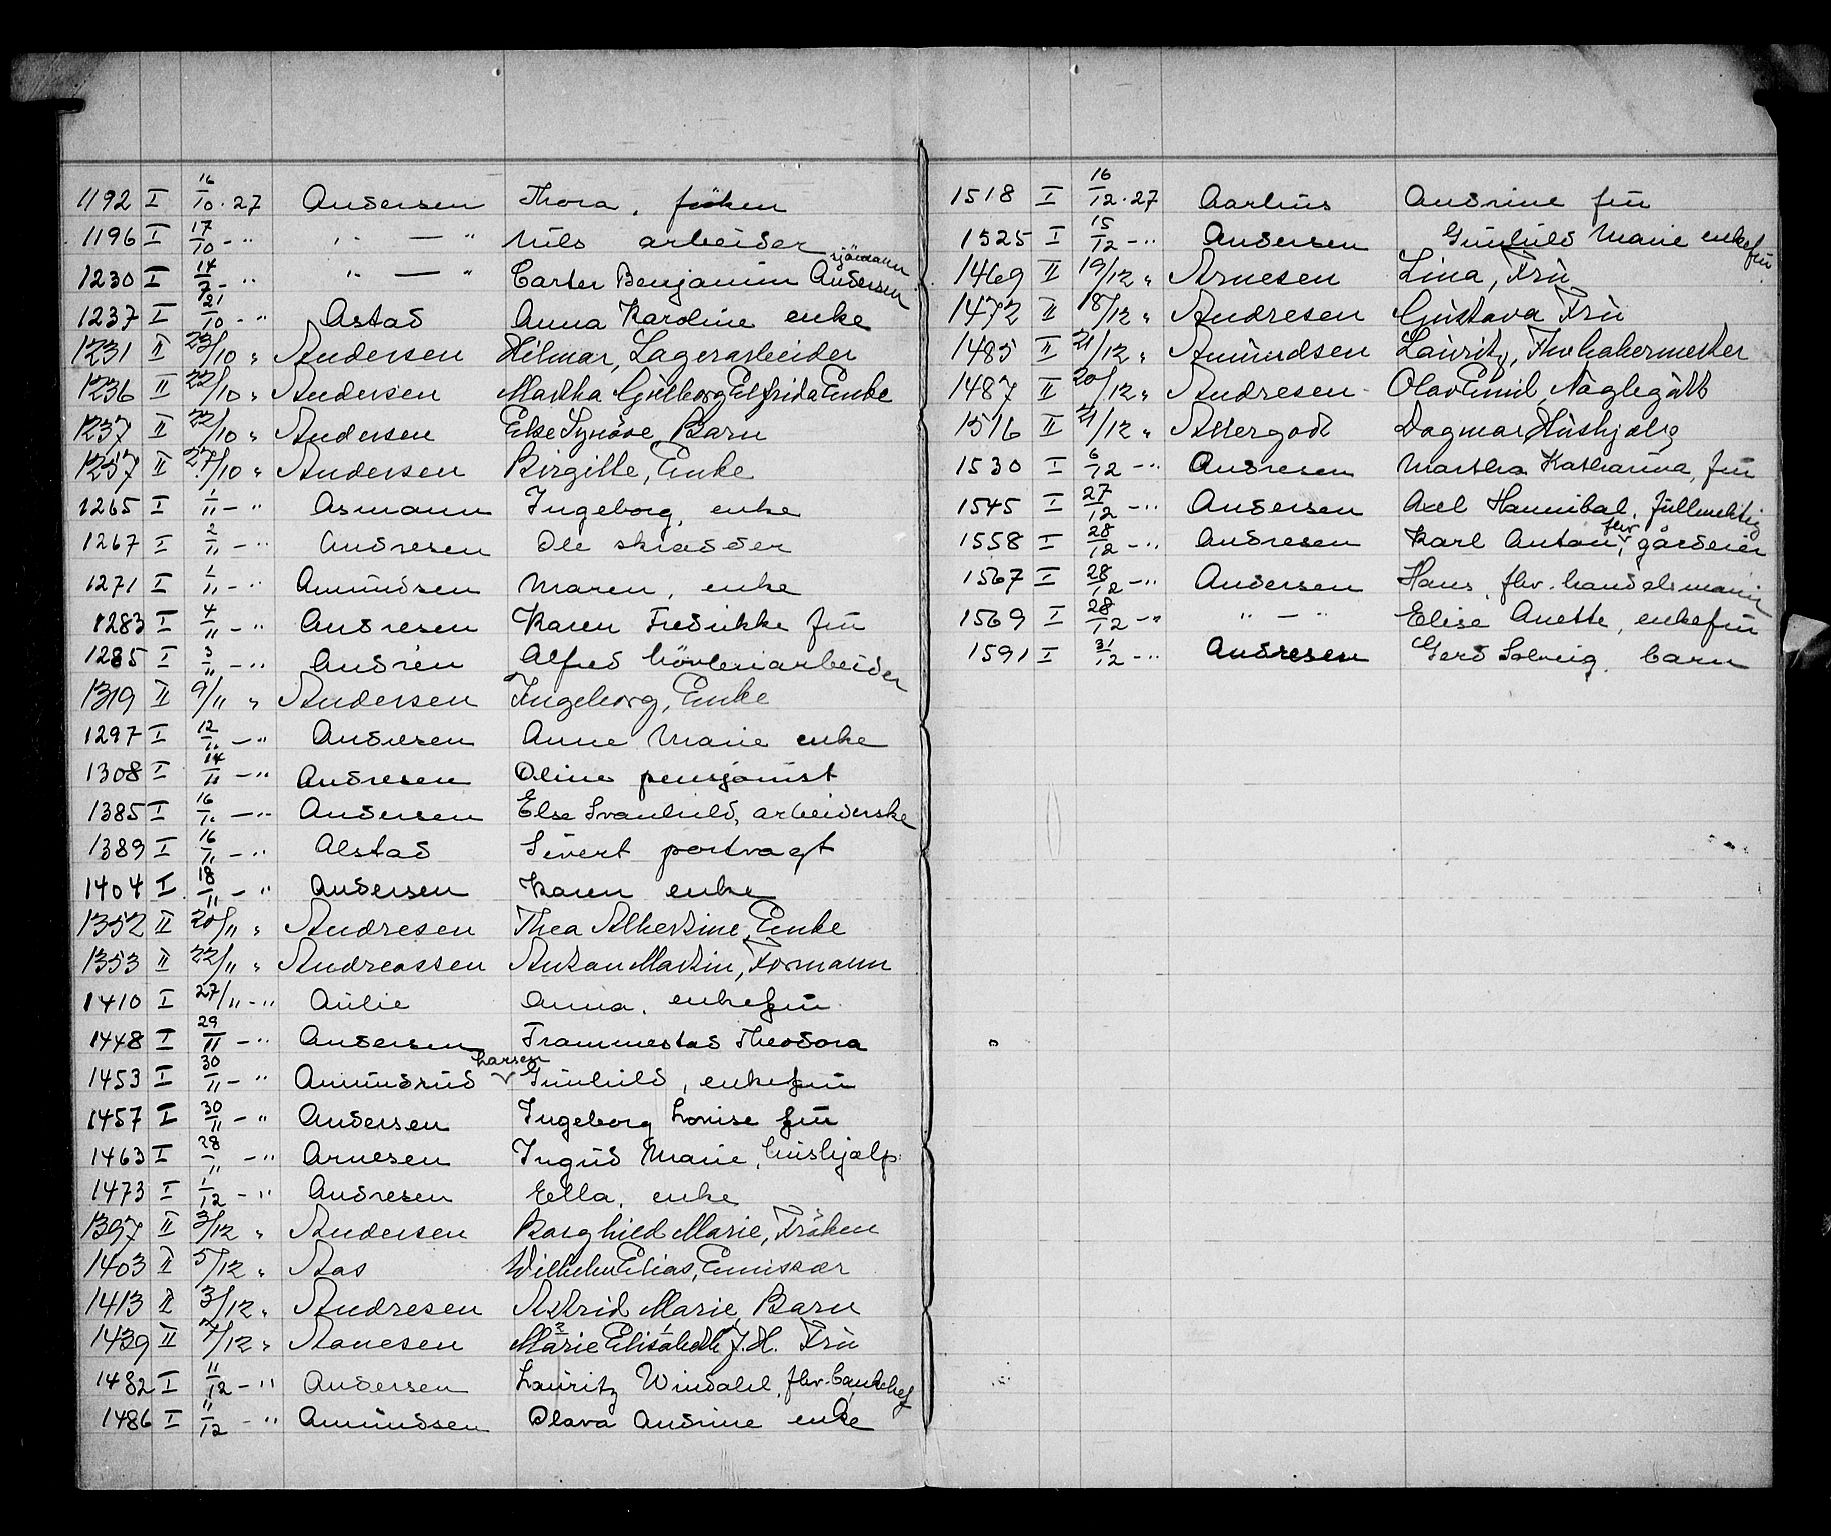 1192 I 16/10 · 27 Andersen Thora, fröken
1196 I 17/10 - " " — " Nils arbeider
1230 I 14/7 - " " — " Carter Benjamin Andersen sjömann
1237 I 21/10 - " Astad Anna Karoline enke
1231 II 23/10 " Andersen Hilmar, Lagerarbeider
1236 II 22/10 " Andersen Martha Gulborg Elfrida Enke
1237 II 22/10 " Andersen Else Synöve, Barn
1257 II 27/10 " Andersen Birgitte, Enke
1265 I 1/11 - " Asmann Ingeborg, enke
1267 I 2/11 - " Andresen Ole skrædder
1271 I 1/11 - " Amundsen Maren, enke
1283 I 4/11 - " Andresen Karen Fredrikke fru
1285 I 3/11 - " Andrén Alfred hövleriarbeider
1319 II 9/11 " Andersen Ingeborg, Enke
1297 I 12/11 - " Andresen Anne Marie enke
1308 I 14/11 - " Andresen Oline pensjonist
1385 I 16/11 - " Andersen Else Svanhild, arbeiderske
1389 I 16/11 - " Alstad Sivert portvagt
1404 I 18/11 - " Andersen Karen enke
1352 II 20/11 " Andresen Thea Albertine, Enke
1353 II 22/11 " Andreassen Anton Martin, Formann
1410 I 27/11 - " Aulie Anna, enkefru
1448 I 29/11 - " Andersen Trammestad Theodora
1453 I 30/11 - " Amundrud Larsen Gunhild, enkefru
1457 I 30/11 - " Andersen Ingeborg Lovise fru
1463 I 28/11 - " Arnesen Ingrid Marie, hushjælp
1473 I 1/12 - " Andresen Ella, enke
1397 II 3/12 " Andersen Borghild Marie, Fröken
1403 II 5/12 " Aas Wilhelm Elias, Emissær
1413 II 3/12 " Andresen Astrid Marie, Barn
1439 II 7/12 " Aanesen Marie Elisabeth J. H. Fru
1482 I 11/12 - " Andersen Lauritz Windahl, fhv. bankchef
1486 I 11/12 - " Amundsen Olava Andrine enke
1518 I 16/12 · 27 Aarhus Andrine fru
1525 I 15/12 - " Andersen Gunhild Marie enkefru
1469 II 19/12 " Arnesen Lina, Fru
1472 II 18/12 " Andresen Gustava Fru
1485 II 21/12 " Amundsen Lauritz, Fhv hakermester
1487 II 20/12 " Andresen Olav Emil, Nøglegutt
1516 II 21/12 " Allergodt Dagmar Hushjælp
1530 I 6/12 - " Andresen Martha Katharina, fru
1545 I 27/12 - " Andersen Axel Hannibal, fullmektig
1558 I 28/12 - " Andresen Karl Anton, fhv. gårdeier
1567 I 28/12 - " Andersen Hans, fhv. handelsmann
1569 I 28/12 - " " — " Elise Anette, enkefru
1591 I 31/12 - " Andresen Gerd Solveig, barn